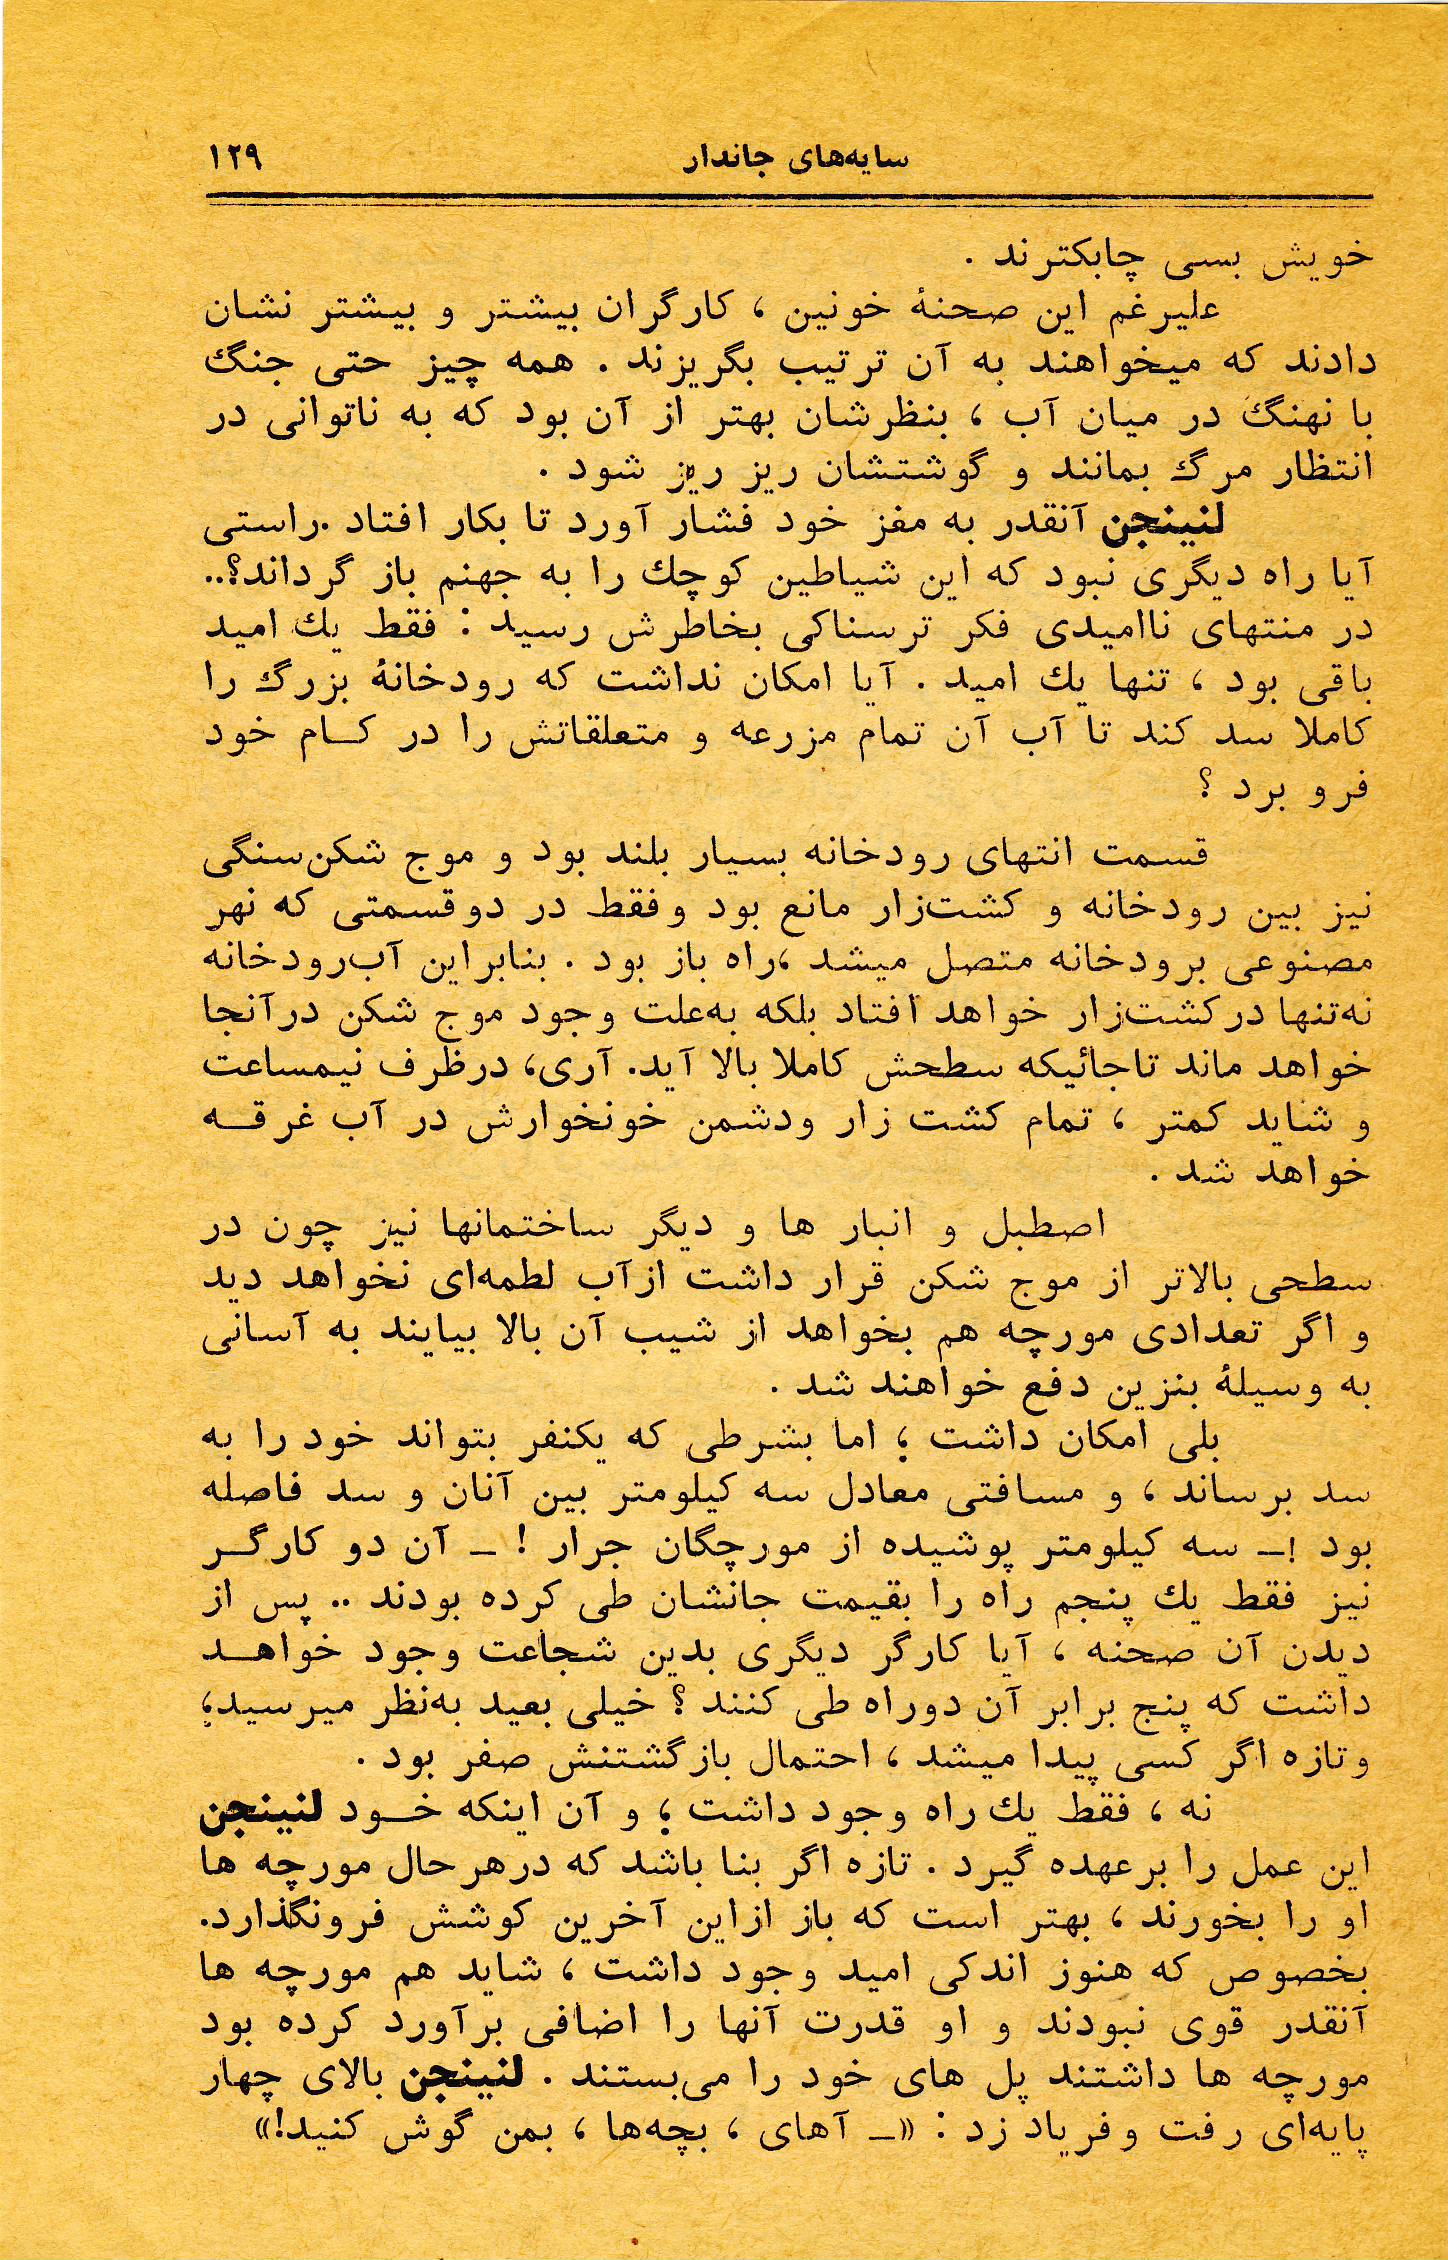 سایه‌های جاندار
۱۲۹
خویش بسی چابکترند .
علیرغم این صحنهٔ خونین ، کارگران بیشتر و بیشتر نشان
دادند که میخواهند به آن ترتیب بگریزند . همه چیز حتی جنگ
با نهنگ در میان آب ، بنظرشان بهتر از آن بود که به ناتوانی در
انتظار مرگ بمانند و گوشتشان ریز ریز شود .
لنینجن آنقدر به مفز خود فشار آورد تا بکار افتاد .راستی
آیا راه دیگری نبود که این شیاطین کوچك را به جهنم باز گرداند؟..
در منتهای ناامیدی فکر ترسناکی بخاطرش رسید : فقط یك امید
باقی بود ، تنها یك امید . آیا امکان نداشت که رودخانهٔ بزرگ را
کاملا سد کند تا آب آن تمام مزرعه و متعلقاتش را در کـام خود
فرو برد ؟
قسمت انتهای رودخانه بسیار بلند بود و موج شکن‌سنگی
نیز بین رودخانه و کشت‌زار مانع بود وفقط در دوقسمتی که نهر
مصنوعی برودخانه متصل میشد ،راه باز بود . بنابراین آب‌رودخانه
نه‌تنها درکشت‌زار خواهد افتاد بلکه به‌علت وجود موج شکن درآنجا
خواهد ماند تاجائیکه سطحش کاملا بالا آید. آری، درظرف نیمساعت
و شاید کمتر ، تمام کشت زار ودشمن خونخوارش در آب غرقـه
خواهد شد .
اصطبل و انبار ها و دیگر ساختمانها نیز چون در
سطحی بالاتر از موج شکن قرار داشت ازآب لطمه‌ای نخواهد دید
و اگر تعدادی مورچه هم بخواهد از شیب آن بالا بیایند به آسانی
به وسیلهٔ بنزین دفع خواهند شد .
بلی امکان داشت ؛ اما بشرطی که یکنفر بتواند خود را به
سد برساند ، و مسافتی معادل سه کیلومتر بین آنان و سد فاصله
بود !ـ سه کیلومتر پوشیده از مورچگان جرار ! ـ آن دو کارگـر
نیز فقط یك پنجم راه را بقیمت جانشان طی کرده بودند .. پس از
دیدن آن صحنه ، آیا کارگر دیگری بدین شجاعت وجود خواهـد
داشت که پنج برابر آن دوراه طی کنند ؟ خیلی بعید به‌نظر میرسید؛
وتازه اگر کسی پیدا میشد ، احتمال بازگشتنش صفر بود .
نه ، فقط یك راه وجود داشت ؛ و آن اینکه خـود لنینجن
این عمل را برعهده گیرد . تازه اگر بنا باشد که درهرحال مورچه ها
او را بخورند ، بهتر است که باز ازاین آخرین کوشش فرونگذارد.
بخصوص که هنوز اندکی امید وجود داشت ، شاید هم مورچه ها
آنقدر قوی نبودند و او قدرت آنها را اضافی برآورد کرده بود
مورچه ها داشتند پل های خود را می‌بستند . لنینجن بالای چهار
پایه‌ای رفت وفریاد زد : «ـ آهای ، بچه‌ها ، بمن گوش کنید!»